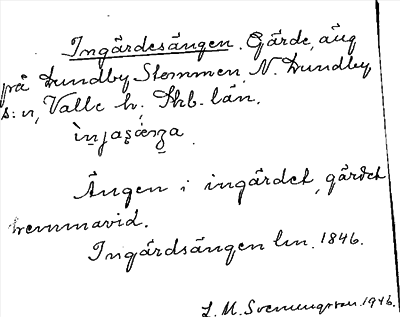 Ingärdesängen. Gärde, äng
på Lundby Stommen, N. Lundby
s:n, Valle h., Skb. län.
Ängen i ingärdet, gärdet
hemmavid.
Ingärdsängen lm. 1846.
L. M. Svenungsson 1946.